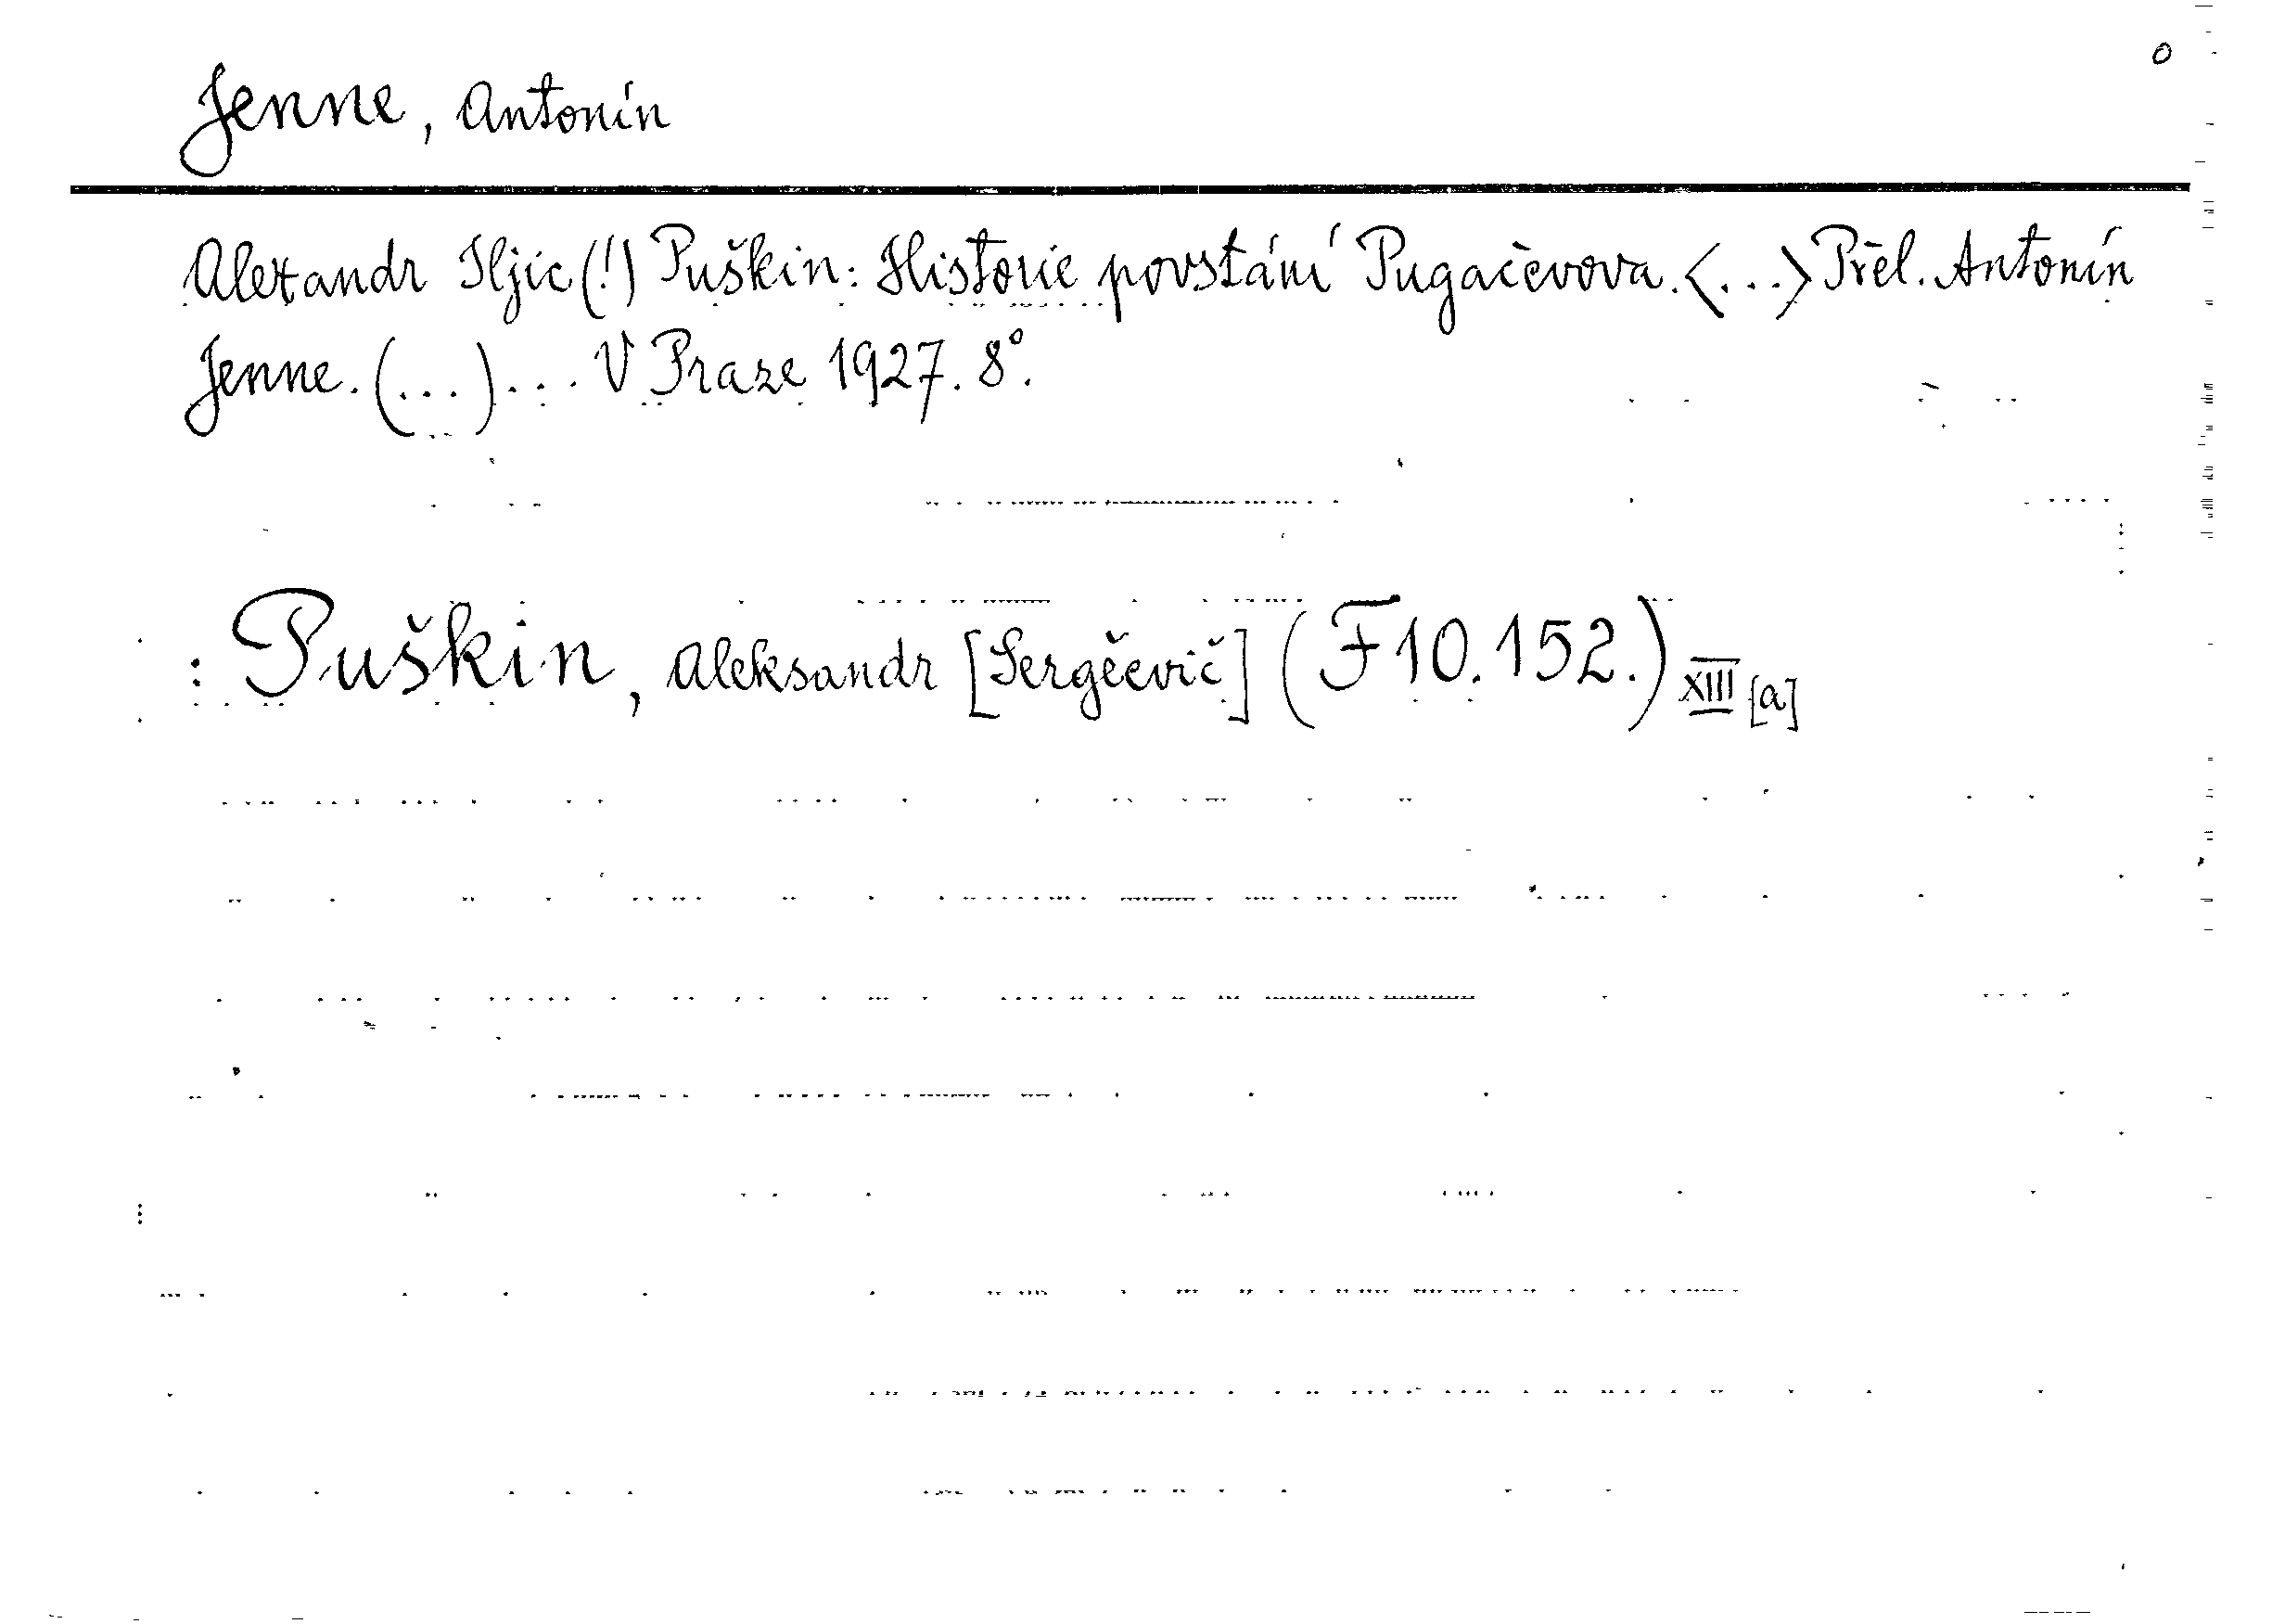 0
Jenne, Antonín
Alexandr Iljic (!) Puškin: Historie povstání Pugačevova. <...> Přel. Antonín
Jenne. (...) ... V Praze 1927. 8°.
: Puškin, Aleksandr [Sergěevič] (F 10.152.) XIII [a]